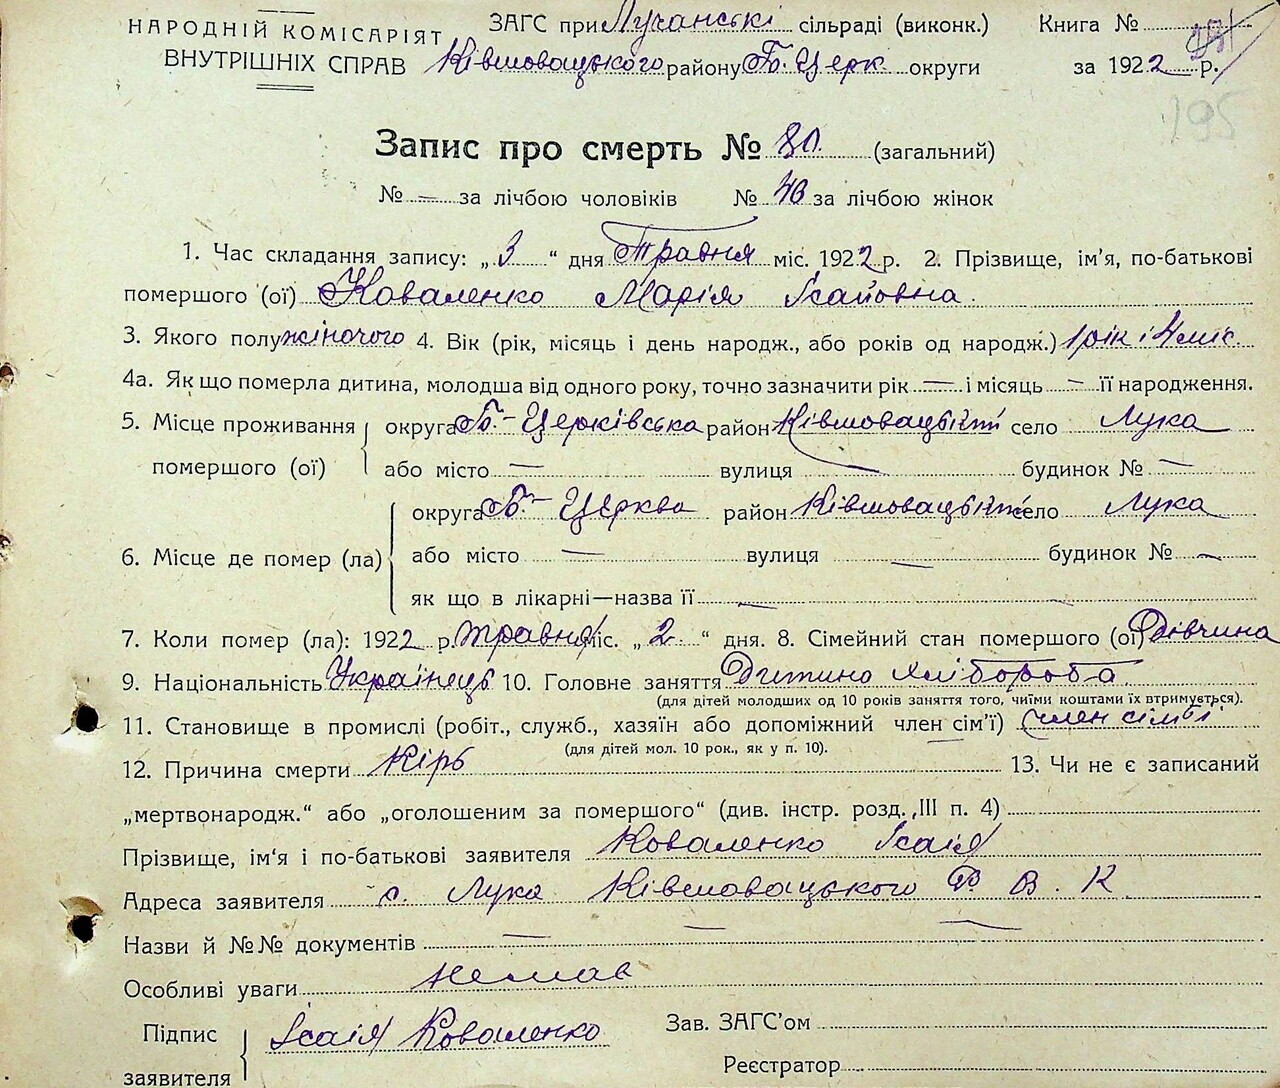 НАРОДНІЙ КОМІСАРІЯТ ЗАГС при Лучанські сільраді (виконк.) Книга №
ВНУТРІШНІХ СПРАВ Ківшовацького району Б. Церк округи за 1922 р.
195
Запис про смерть № 80 (загальний)
№ — за лічбою чоловіків № 40 за лічбою жінок
1. Час складання запису: „3“ дня Травня міс. 1922 р. 2. Прізвище, ім'я, по-батькові
помершого (ої) Коваленко Марія Ісаївна.
3. Якого полу жіночого 4. Вік (рік, місяць і день народж., або років од народж.) 1 рік і 4 міс.
4а. Як що померла дитина, молодша від одного року, точно зазначити рік — і місяць — її народження.
5. Місце проживання округа Б.-Церківська район Ківшовацький село Лука
помершого (ої) або місто — вулиця — будинок № —
округа Б.-Церква район Ківшовацький село Лука
6. Місце де помер (ла) або місто — вулиця — будинок № —
як що в лікарні—назва її —
7. Коли помер (ла): 1922 р. травня міс. „2“ дня. 8. Сімейний стан помершого (ої) Дівчина
9. Національність Українець 10. Головне заняття Дитино хлібороба
(для дітей молодших од 10 років заняття того, чиїми коштами їх втримується).
11. Становище в промислі (робіт., служб., хазяїн або допоміжний член сім'ї) член сім'ї
(для дітей мол. 10 рок., як у п. 10).
12. Причина смерти Кірь 13. Чи не є записаний
„мертвонародж.“ або „оголошеним за помершого“ (див. інстр. розд. III п. 4)
Прізвище, ім'я і по-батькові заявителя Коваленко Ісаія
Адреса заявителя с. Лука Ківшовацького Р. В. К
Назви й №№ документів — — —
Особливі уваги немає
Підпис Ісаія Коваленко Зав. ЗАГС'ом
заявителя Реєстратор